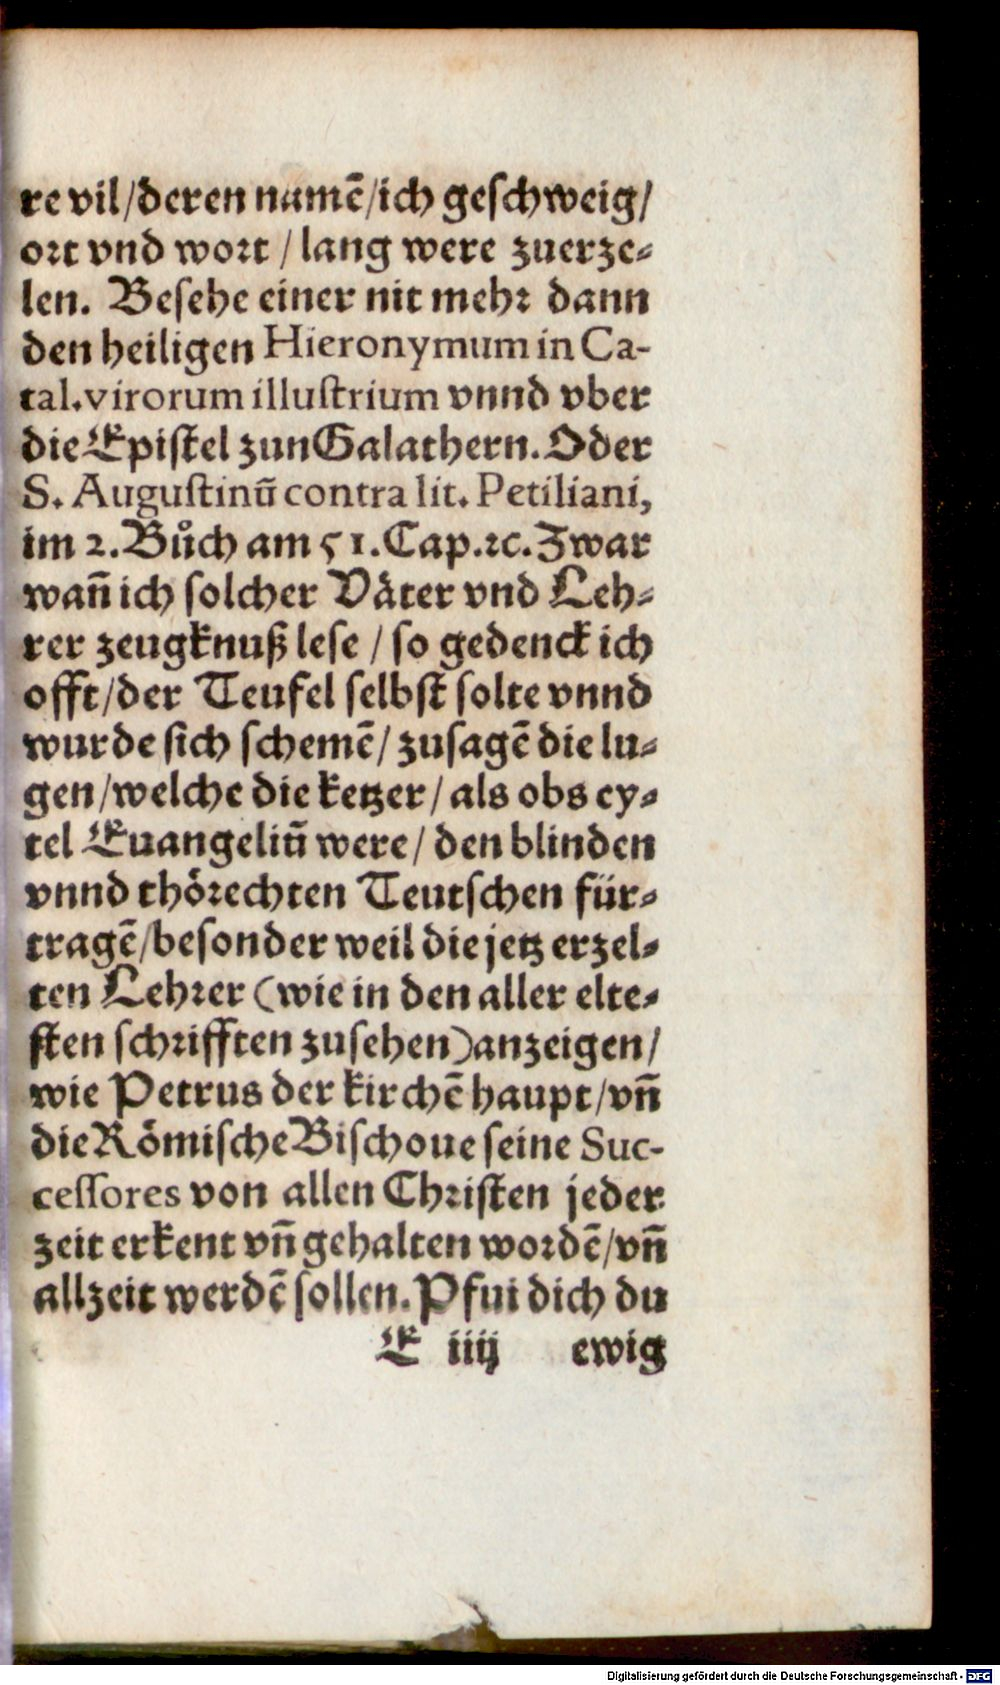 re vil/deren namẽ/ich geschweig/
ort vnd wort / lang were zuerze-
len. Besehe einer nit mehr dann
den heiligen Hieronymum in Ca-
tal. virorum illustrium vnnd vber
die Epistel zun Galathern. Oder
S. Augustinũ contra lit. Petiliani,
im 2. Bůch am 51. Cap. ꝛc. Zwar
wañ ich solcher Väter vnd Leh-
rer zeugknuß lese / so gedenck ich
offt/der Teufel selbst solte vnnd
wurde sich schemẽ/ zusagẽ die lu-
gen/welche die ketzer/ als obs ey-
tel Euangeliũ were/ den blinden
vnnd thörechten Teutschen für-
tragẽ/besonder weil die jetz erzel-
ten Lehrer (wie in den aller elte-
sten schrifften zusehen) anzeigen/
wie Petrus der kirchẽ haupt/vñ
die Römische Bischoue seine Suc-
cessores von allen Christen jeder
zeit erkent vñ gehalten wordẽ/vñ
allzeit werdẽ sollen. Pfui dich du
E iiij ewig
Digitalisierung gefördert durch die Deutsche Forschungsgemeinschaft - DFG